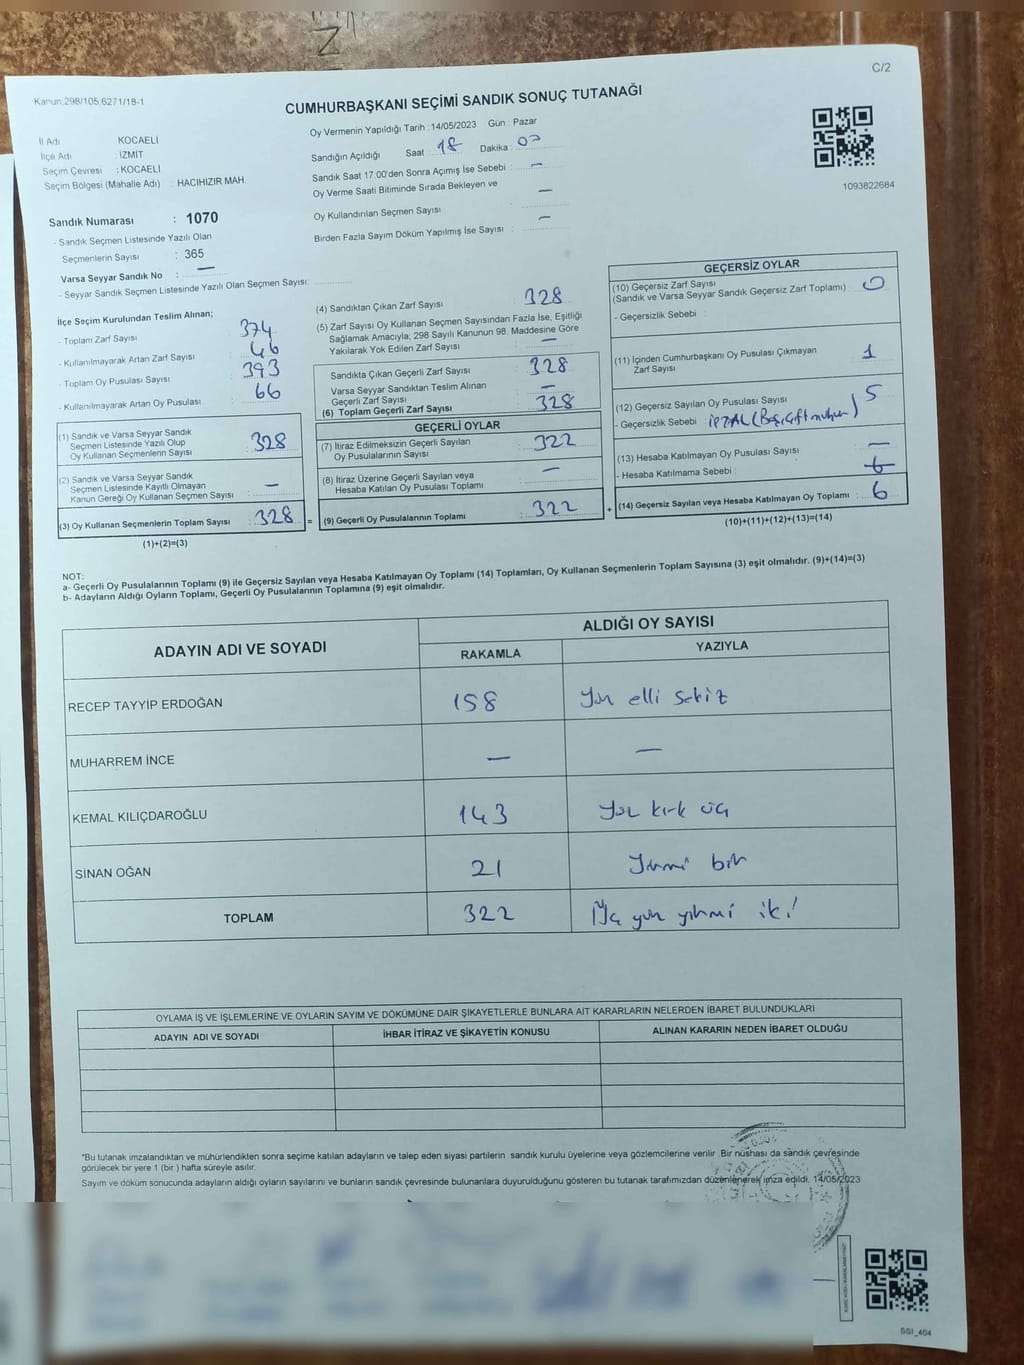 C/2
Kanun:298/105,6271/18-1
CUMHURBAŞKANI SEÇİMİ SANDIK SONUÇ TUTANAĞI
İl Adı KOCAELİ
İlçe Adı : İZMİT
Seçim Çevresi : KOCAELİ
Seçim Bölgesi (Mahalle Adı) : HACIHIZIR MAH.
Sandık Numarası : 1070
- Sandık Seçmen Listesinde Yazılı Olan
Seçmenlerin Sayısı : 365
Varsa Seyyar Sandık No : —
- Seyyar Sandık Seçmen Listesinde Yazılı Olan Seçmen Sayısı:
Oy Vermenin Yapıldığı Tarih :14/05/2023 Gün : Pazar
Sandığın Açıldığı Saat : 18 Dakika : 07
Sandık Saat 17:00'den Sonra Açımış İse Sebebi : —
Oy Verme Saati Bitiminde Sırada Bekleyen ve
Oy Kullandırılan Seçmen Sayısı —
Birden Fazla Sayım Döküm Yapılmış İse Sayısı : —
1093822684
İlçe Seçim Kurulundan Teslim Alınan;
- Toplam Zarf Sayısı 374
- Kullanılmayarak Artan Zarf Sayısı : 46
- Toplam Oy Pusulası Sayısı : 393
- Kullanılmayarak Artan Oy Pusulası : 66
(1) Sandık ve Varsa Seyyar Sandık
Seçmen Listesinde Yazılı Olup
Oy Kullanan Seçmenlerin Sayısı : 328
(2) Sandık ve Varsa Seyyar Sandık
Seçmen Listesinde Kayıtlı Olmayan
Kanun Gereği Oy Kullanan Seçmen Sayısı : —
(3) Oy Kullanan Seçmenlerin Toplam Sayısı : 328 =
(1)+(2)=(3)
(4) Sandıktan Çıkan Zarf Sayısı : 328
(5) Zarf Sayısı Oy Kullanan Seçmen Sayısından Fazla İse, Eşitliği
Sağlamak Amacıyla; 298 Sayılı Kanunun 98. Maddesine Göre
Yakılarak Yok Edilen Zarf Sayısı : —
Sandıkta Çıkan Geçerli Zarf Sayısı : 328
Varsa Seyyar Sandıktan Teslim Alınan
Geçerli Zarf Sayısı : —
(6) Toplam Geçerli Zarf Sayısı : 328
GEÇERLİ OYLAR
(7) İtiraz Edilmeksizin Geçerli Sayılan
Oy Pusulalarının Sayısı : 322
(8) İtiraz Üzerine Geçerli Sayılan veya
Hesaba Katılan Oy Pusulası Toplamı : —
(9) Geçerli Oy Pusulalarının Toplamı : 322 +
GEÇERSİZ OYLAR
(10) Geçersiz Zarf Sayısı :
(Sandık ve Varsa Seyyar Sandık Geçersiz Zarf Toplamı) 0
- Geçersizlik Sebebi :
(11) İçinden Cumhurbaşkanı Oy Pusulası Çıkmayan
Zarf Sayısı 1
(12) Geçersiz Sayılan Oy Pusulası Sayısı : 5
- Geçersizlik Sebebi : İPTAL (Boş, Çift mühür)
(13) Hesaba Katılmayan Oy Pusulası Sayısı —
- Hesaba Katılmama Sebebi :
(14) Geçersiz Sayılan veya Hesaba Katılmayan Oy Toplamı : 6
(10)+(11)+(12)+(13)=(14)
NOT:
a- Geçerli Oy Pusulalarının Toplamı (9) ile Geçersiz Sayılan veya Hesaba Katılmayan Oy Toplamı (14) Toplamları, Oy Kullanan Seçmenlerin Toplam Sayısına (3) eşit olmalıdır. (9)+(14)=(3)
b- Adayların Aldığı Oyların Toplamı, Geçerli Oy Pusulalarının Toplamına (9) eşit olmalıdır.
ADAYIN ADI VE SOYADI ALDIĞI OY SAYISI
RAKAMLA YAZIYLA
RECEP TAYYİP ERDOĞAN 158 Yüz elli sekiz
MUHARREM İNCE — —
KEMAL KILIÇDAROĞLU 143 Yüz kırk üç
SİNAN OĞAN 21 Yirmi bir
TOPLAM 322 Üç yüz yirmi iki
OYLAMA İŞ VE İŞLEMLERİNE VE OYLARIN SAYIM VE DÖKÜMÜNE DAİR ŞİKAYETLERLE BUNLARA AİT KARARLARIN NELERDEN İBARET BULUNDUKLARI
ADAYIN ADI VE SOYADI İHBAR İTİRAZ VE ŞİKAYETİN KONUSU ALINAN KARARIN NEDEN İBARET OLDUĞU
*Bu tutanak imzalandıktan ve mühürlendikten sonra seçime katılan adayların ve talep eden siyasi partilerin sandık kurulu üyelerine veya gözlemcilerine verilir. Bir nüshası da sandık çevresinde
görülecek bir yere 1 (bir ) hafta süreyle asılır.
Sayım ve döküm sonucunda adayların aldığı oyların sayılarını ve bunların sandık çevresinde bulunanlara duyurulduğunu gösteren bu tutanak tarafımızdan düzenlenerek imza edildi. 14/05/2023
SSI_404